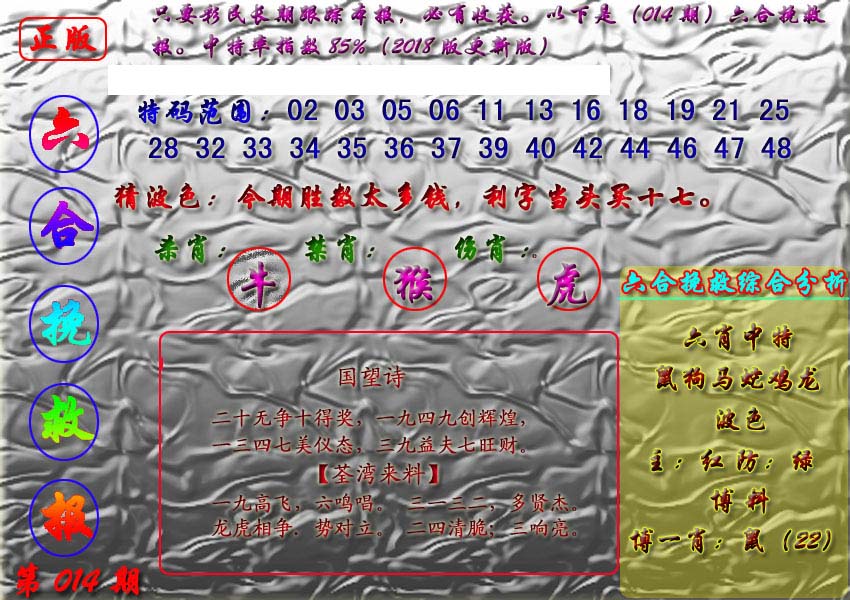 正版
只要彩民长期跟踪本报，必有收获。以下是（014期）六合挽救
报。中特率指数85%（2018版更新版）
六
合
挽
救
报
第014期
特码范围：02 03 05 06 11 13 16 18 19 21 25
28 32 33 34 35 36 37 39 40 42 44 46 47 48
猜波色：今期胜数太多钱，利字当头买十七。
杀肖：牛 禁肖：猴 伤肖：。虎
国望诗
二十无争十得奖，一九四九创辉煌，
一三四七美仪态，三九益夫七旺财。
【荃湾来料】
一九高飞，六鸣唱。 三一三二，多贤杰。
龙虎相争．势对立。 二四清脆；三响亮。
六合挽救综合分析
六肖中特
鼠狗马蛇鸡龙
波色
主：红防：绿
博料
博一肖：鼠（22）